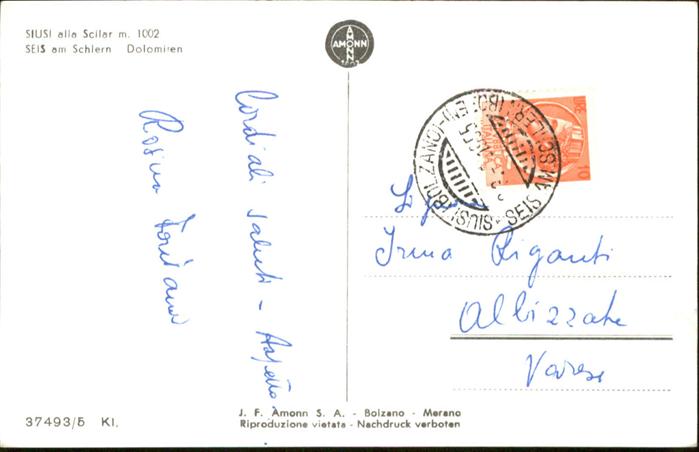 SIUSI alla Scilar m. 1002
SEIS am Schlern Dolomiten
AMONN
Cordiali saluti - Aspetto
Rosina
LIRE 10
SIUSI (BOLZANO) - SEIS AM SCHLERN (BOZEN)
Irma Riganti
Albizzate
Varese
37493/5 Kl.
J. F. Amonn S. A. - Bolzano - Merano
Riproduzione vietata - Nachdruck verboten